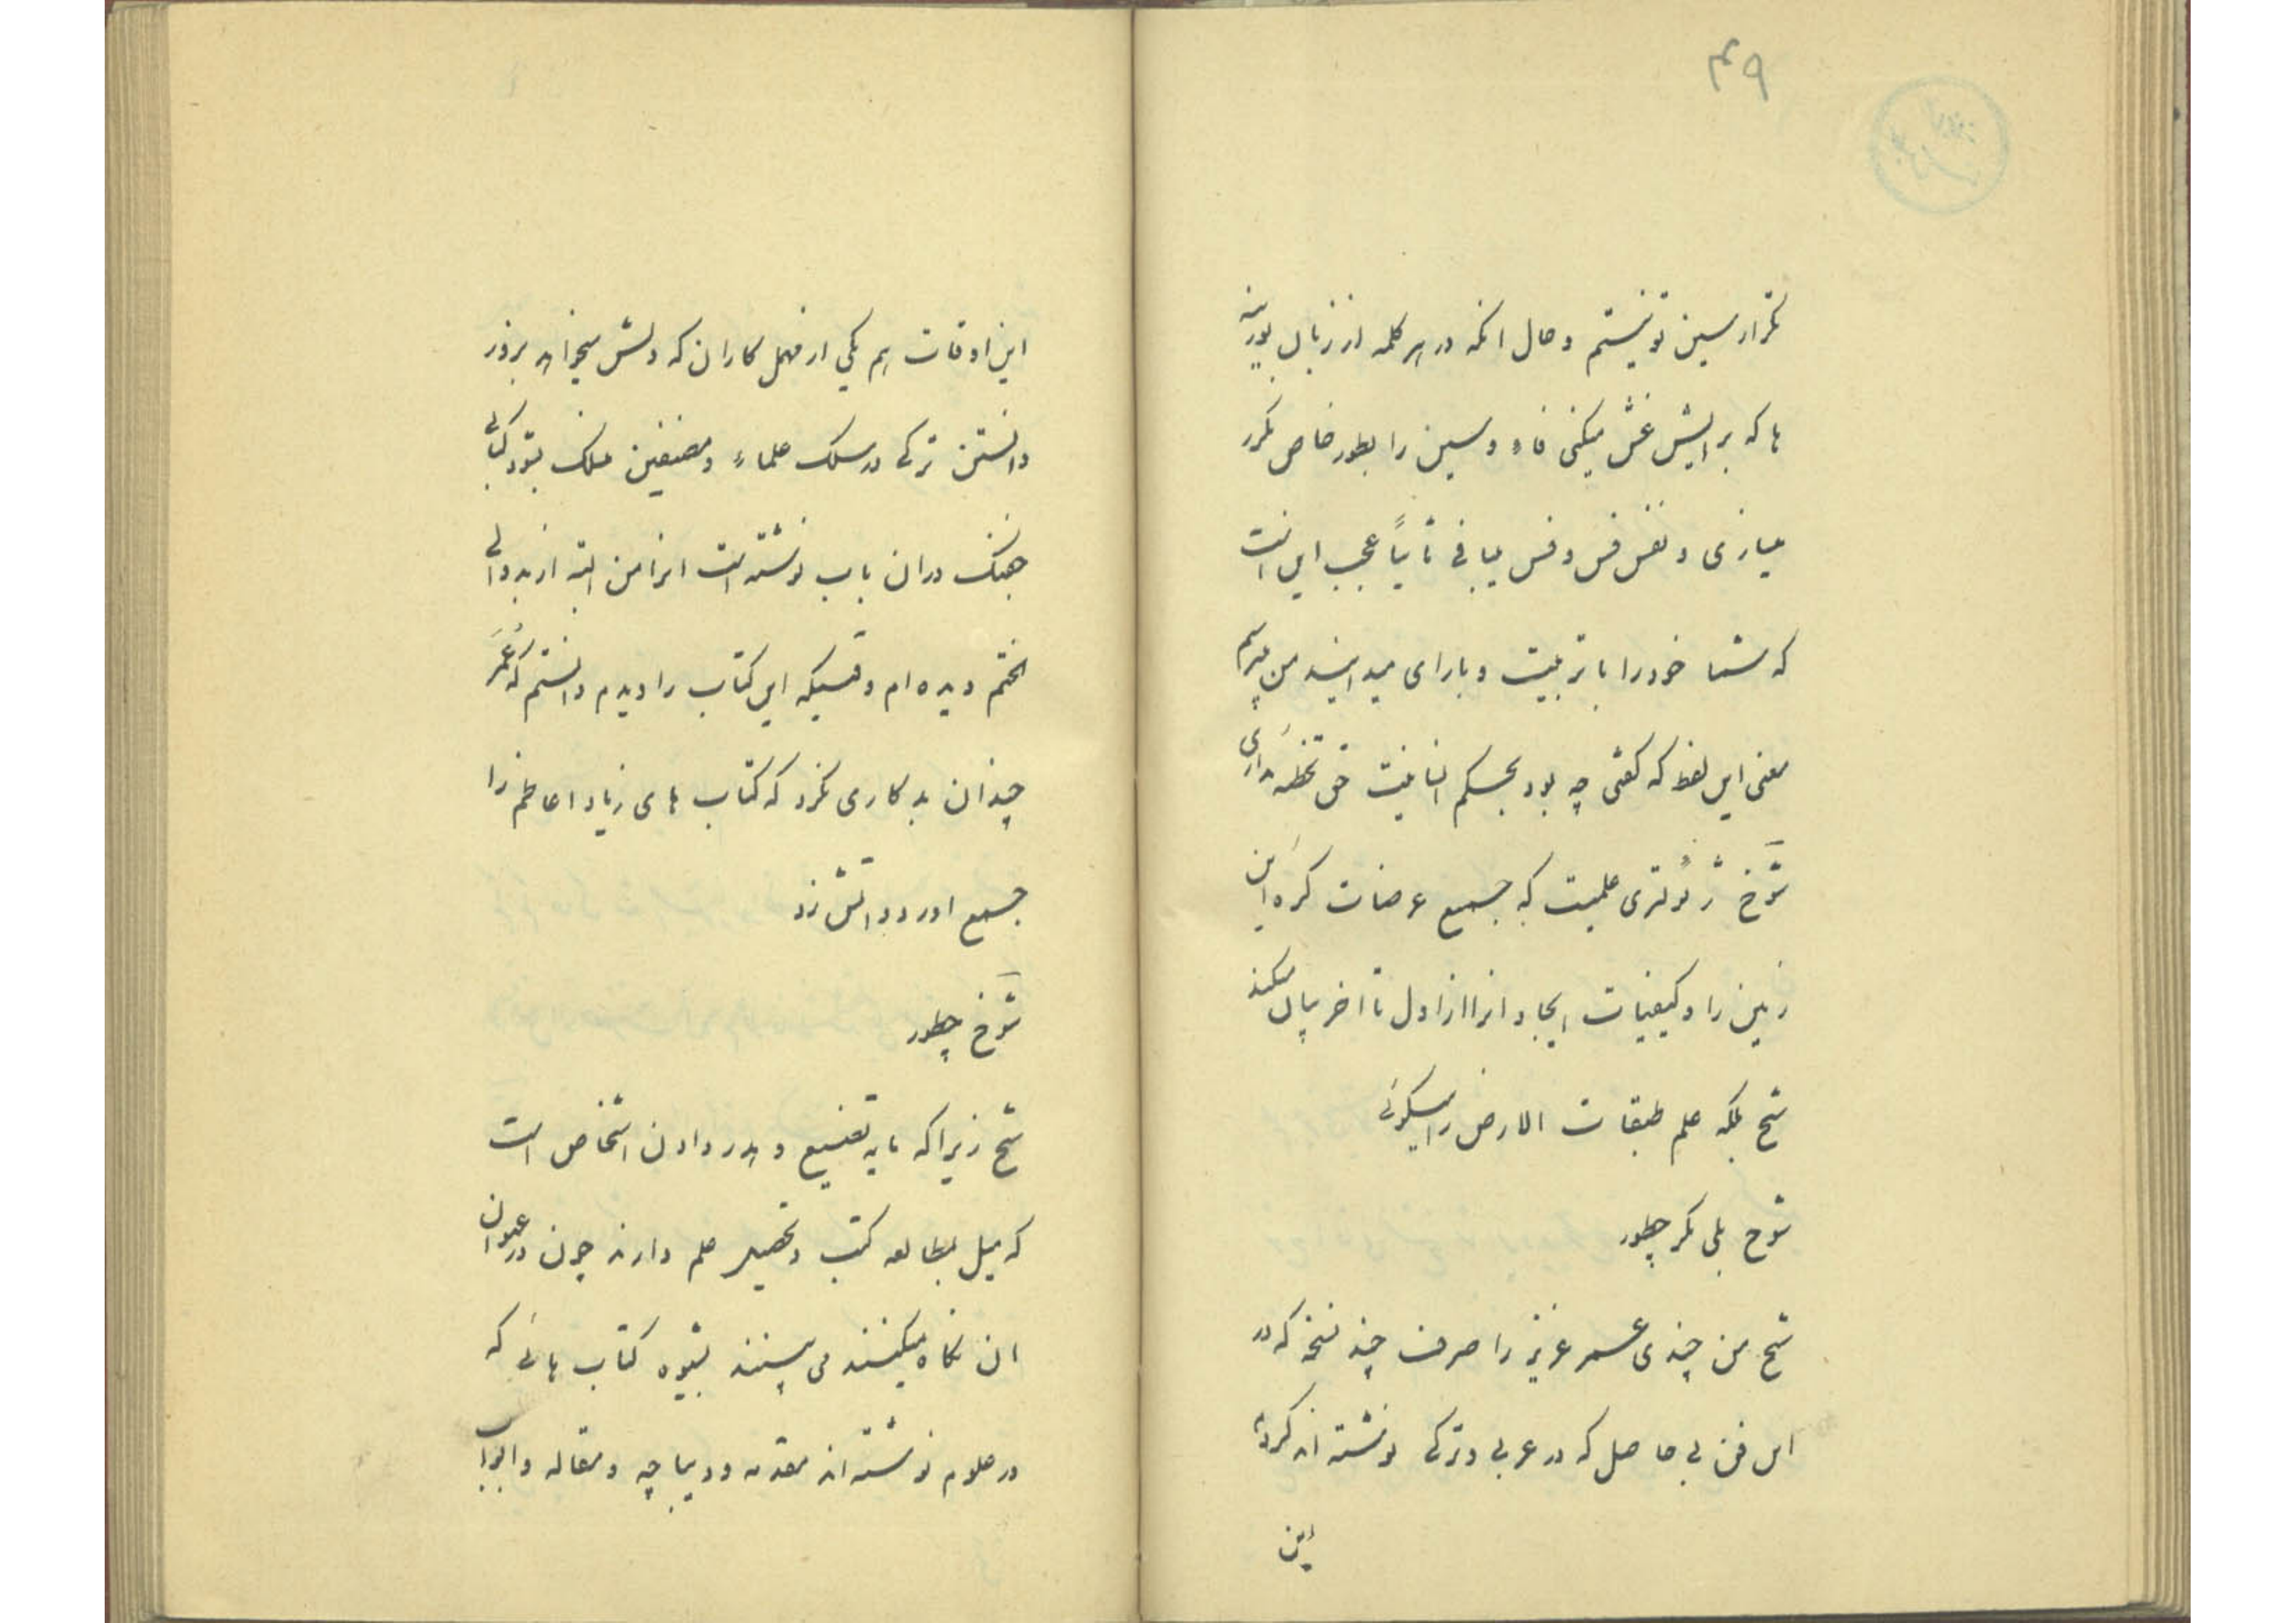 ۴۹
تکرار سین تونیستم و حال انکه در هر کلمه از زبان یورپ
ها که برایش غش میکنی فاء و سین را بطور خاص مکرر
میازی و نفس فس و فس میبافی ثانیاً عجب این است
که شما خود را با تربیت و بارای میدانید من میپرسم
معنی این لفظ که گفتی چه بود بحکم انسانیت حق تخطئه داری
شوخ ژئولژی علمیست که جمیع عرضات کره این
زمین را و کیفیات ایجاد انرا از اول تا اخر بیان میکند
شیخ بلکه علم طبقات الارض را میگوئی
شوخ بلی مگر چطور
شیخ من چندی عمر عزیز را صرف چند نسخه که در
این فن بی حاصل که در عربی و ترکی نوشته اند کرده
این
این اوقات هم یکی از مهمل کاران که دلش میخواهد بزور
دانستن ترکی در سلک علماء و مصنفین منسلک شود کتابی
جفنک دران باب نوشته است انرا من البته از بدو الی
الختم دیده ام وقتیکه این کتاب را دیدم دانستم که عُمَر
چندان بد کاری نکرد که کتاب های زیاد اعاظم را
جمیع اورد و اتش زد
شوخ چطور
شیخ زیرا که مایه تضییع و هدر دادن اشخاص است
که میل بمطالعه کتب و تحصیل علم دارند چون در عنوان
ان نگاه میکنند می بینند بشیوه کتاب هائی که
در علوم نوشته اند مقدمه و دیباچه و مقاله و ابواب